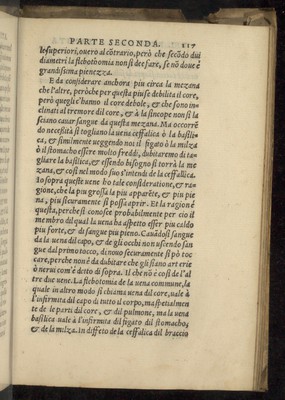 PARTE SECONDA. 117
le superiori, overo al cōtrario, però che secōdo dui
diametri la flebothomia non si dee fare, se nō dove è
grandissima pienezza.
E da considerar anchora piu circa la mezana
che l'altre, peròche per questa piu se debilita il core,
però quegli c'hanno il core debole, & che sono in-
clinati al tremore dil core, & à la sincope non si la
sciano cavar sangue da questa mezana. Ma occorrē
do necessità si togliano la vena ceffalica ò la basili-
ca, & similmente veggendo noi il figato ò la milza
ò il stomacho essere molto freddi, dubitaremo di ta-
gliare la basilica, & essendo bisogno si torrà la me
zana, & cosi nel modo suo s'intendi de la ceffallica.
Io sopra queste vene ho tale consideratione, & ra-
gione, che la piu grossa la piu apparēte, & piu pie
na, piu sicuramente si possa aprir. Et la ragion è
questa, perche si conosce probabilmente per cio il
membro dil qual la vena ha aspetto esser piu caldo
piu forte, & di sangue piu pieno. Cavādosi sangue
da la vena dil capo, & de gli occhi non uscendo san
gue dal primo tocco, di nuovo sicuramente si pò toc
care, perche non è da dubitare che gli siano arterie
ò nervi com'è ditto di sopra. Il che nō è cosi de l'al
tre due vene. La flebotomia de la vena commune, la
quale in altro modo si chiama vena dil core, vale à
l'infirmita dil capo di tutto il corpo, ma spetialmen
te de le parti dil core, & dil pulmone, ma la vena
basilica vale à l'infirmità dil figato dil stomacho,
& de la milza. In diffeto de la ceffalica dil braccio